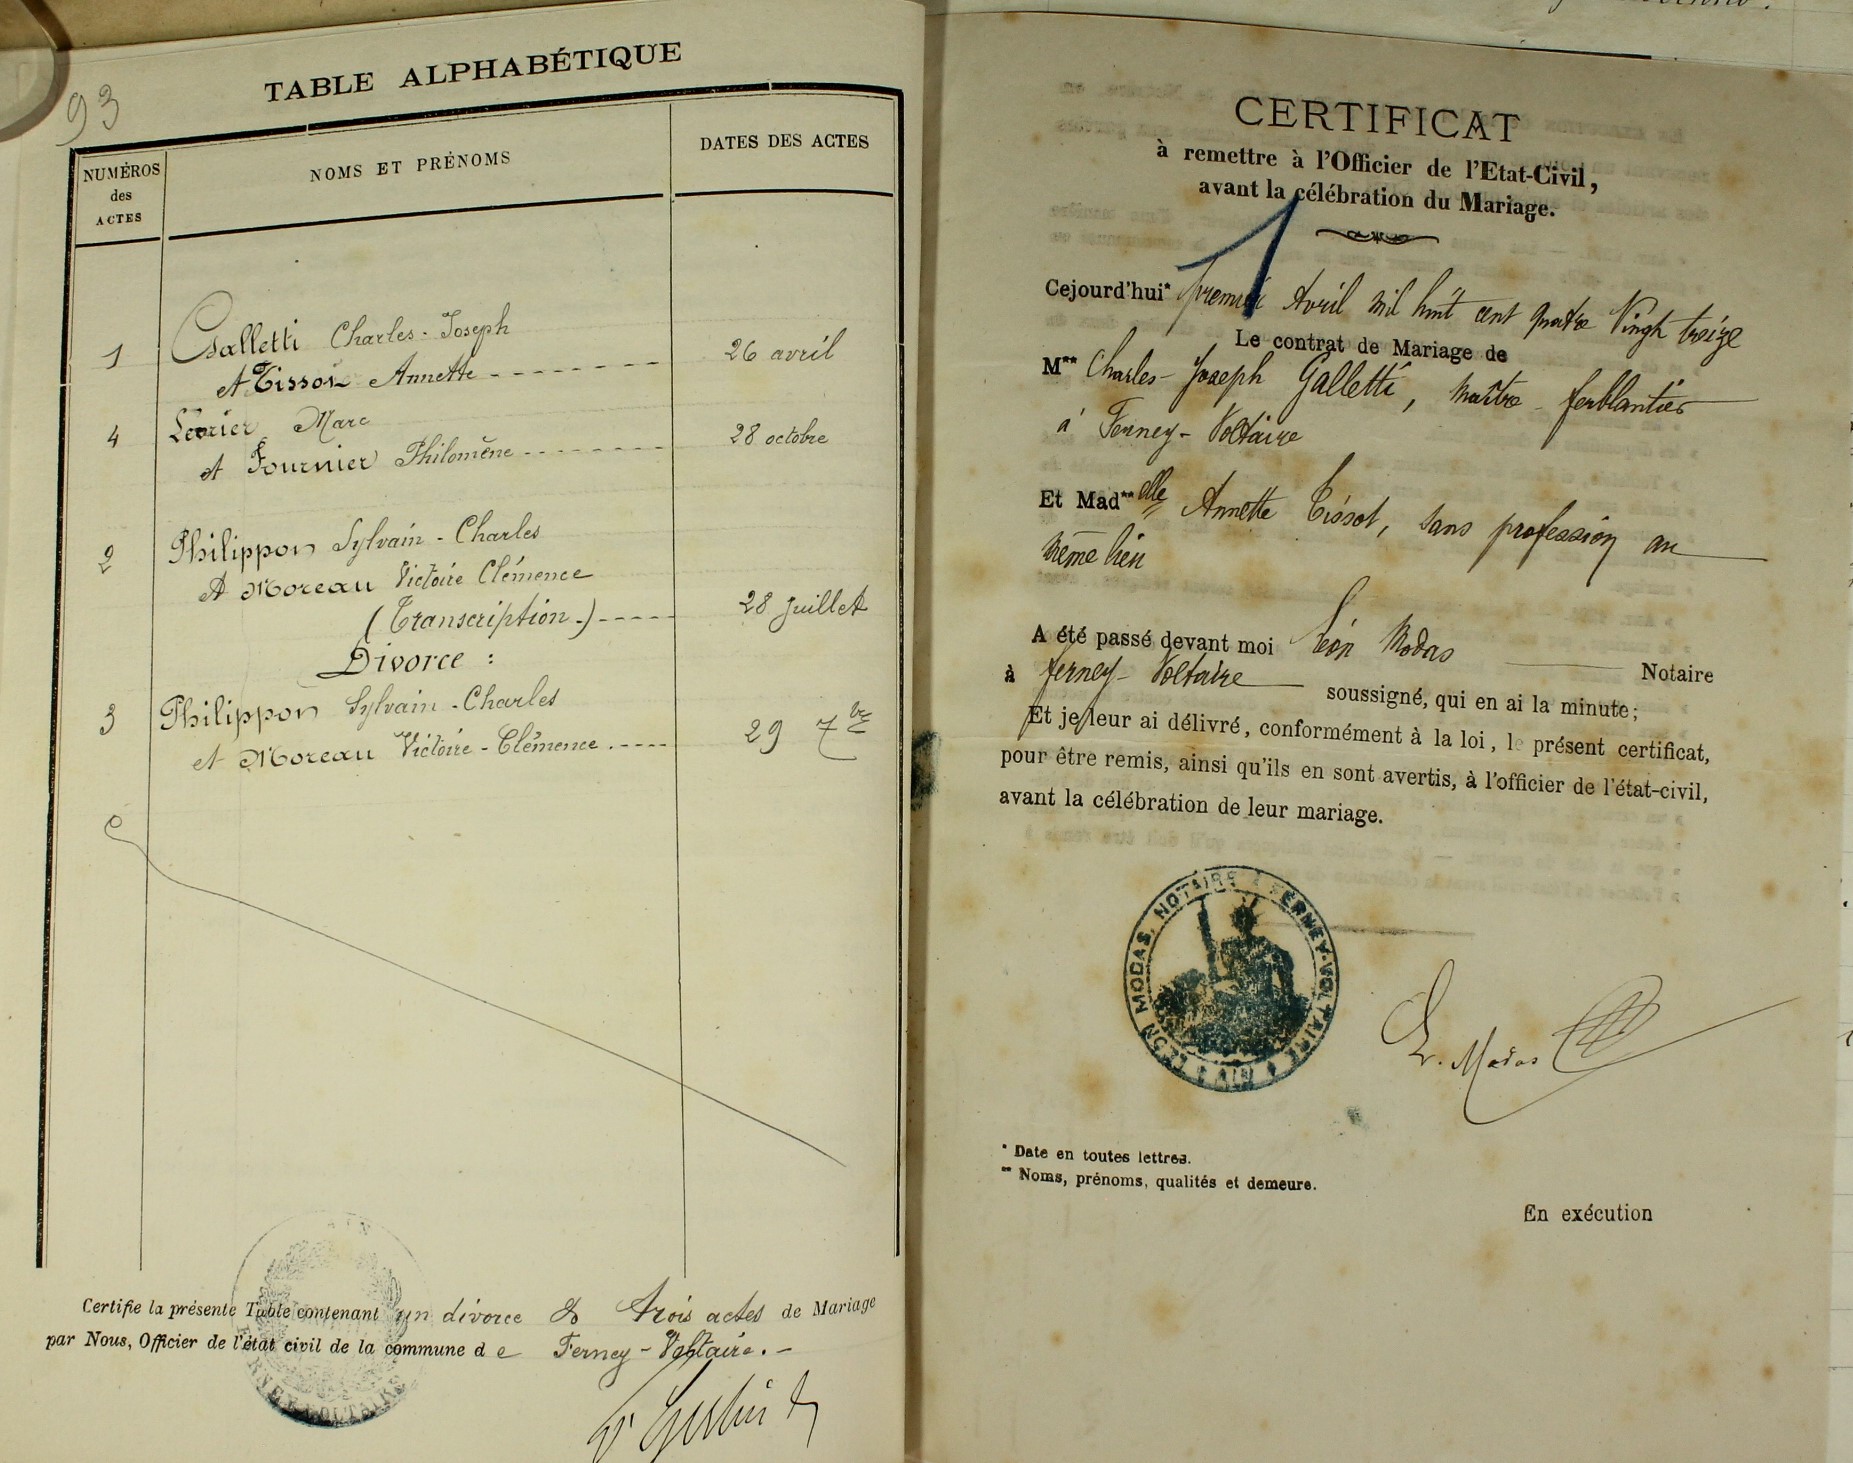 93
TABLE ALPHABÉTIQUE
NUMÉROS
des
ACTES
NOMS ET PRÉNOMS
DATES DES ACTES
1 Galletti Charles-Joseph
et Tissot Annette 26 avril
4 Levrier Marc
et Fournier Philomène 28 octobre
2 Philippon Sylvain-Charles
et Moreau Victoire Clémence
(Transcription.) 28 juillet
Divorce :
3 Philippon Sylvain-Charles
et Moreau Victoire-Clémence 29 7bre
Certifie la présente Table contenant un divorce & trois actes de Mariage
par Nous, Officier de l'état civil de la commune de Ferney-Voltaire.
FERNEY-VOLTAIRE
CERTIFICAT
à remettre à l'Officier de l'Etat-Civil,
avant la célébration du Mariage.
1
Cejourd'hui* premier Avril mil huit cent quatre Vingt treize
Le contrat de Mariage de
M** Charles-Joseph Galletti, maître ferblantier
à Ferney-Voltaire
Et Mad**elle Annette Tissot, sans profession au
même lieu
A été passé devant moi Léon Modas Notaire
à Ferney-Voltaire soussigné, qui en ai la minute;
Et je leur ai délivré, conformément à la loi, le présent certificat,
pour être remis, ainsi qu'ils en sont avertis, à l'officier de l'état-civil,
avant la célébration de leur mariage.
LÉON MODAS, NOTAIRE À FERNEY-VOLTAIRE (AIN)
L. Modas
* Date en toutes lettres.
** Noms, prénoms, qualités et demeure.
En exécution